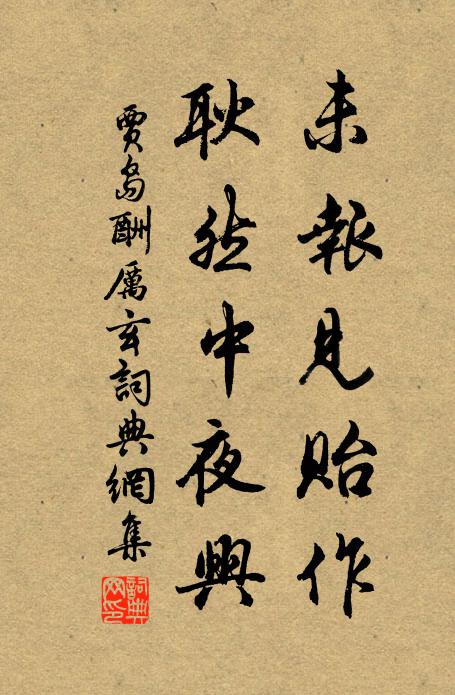 未報見貽作
耿然中夜興
賈島酬厲玄詞典網集
詞典网印